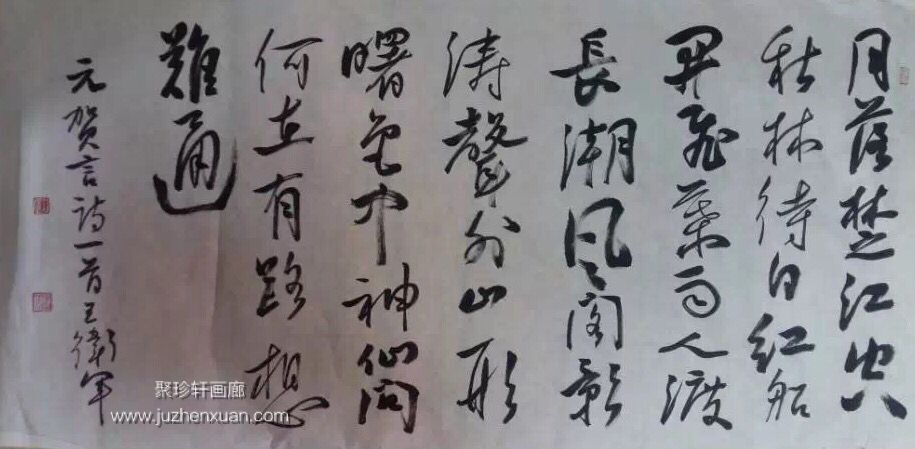 月落楚江空
秋林待日红船
開飛葉雨人渡
長潮风阁影
涛聲外山形
曙色中神仙问
何在有路想
難通
元贺言诗一首王衛军
聚珍轩画廊
www.juzhenxuan.com